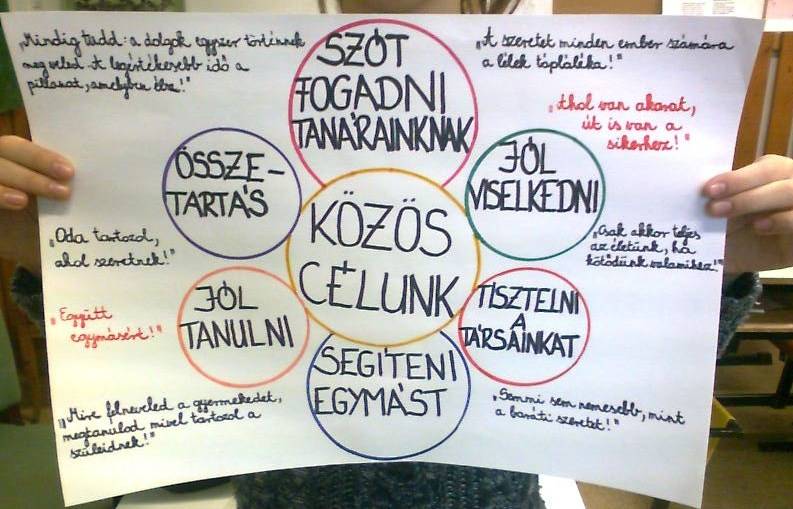 „Mindig tudd: a dolgok egyszer történnek
meg veled. A legértékesebb idő a
pillanat, amelyben élsz!"
SZÓT
FOGADNI
TANÁRAINKNAK
„A szeretet minden ember számára
a lélek tápláléka!"
„Ahol van akarat,
út is van a
sikerhez!"
ÖSSZE-
TARTÁS
JÓL
VISELKEDNI
KÖZÖS
CÉLUNK
„Oda tartozol,
ahol szeretnek!"
„Csak akkor teljes
az életünk, ha
kötődünk valamihez!"
JÓL
TANULNI
TISZTELNI
A
TÁRSAINKAT
„Együtt
egymásért!"
SEGÍTENI
EGYMÁST
„Mire felneveled a gyermekedet,
megtanulod mivel tartozol a
szüleidnek!"
„Semmi sem nemesebb, mint
a baráti szeretet!"